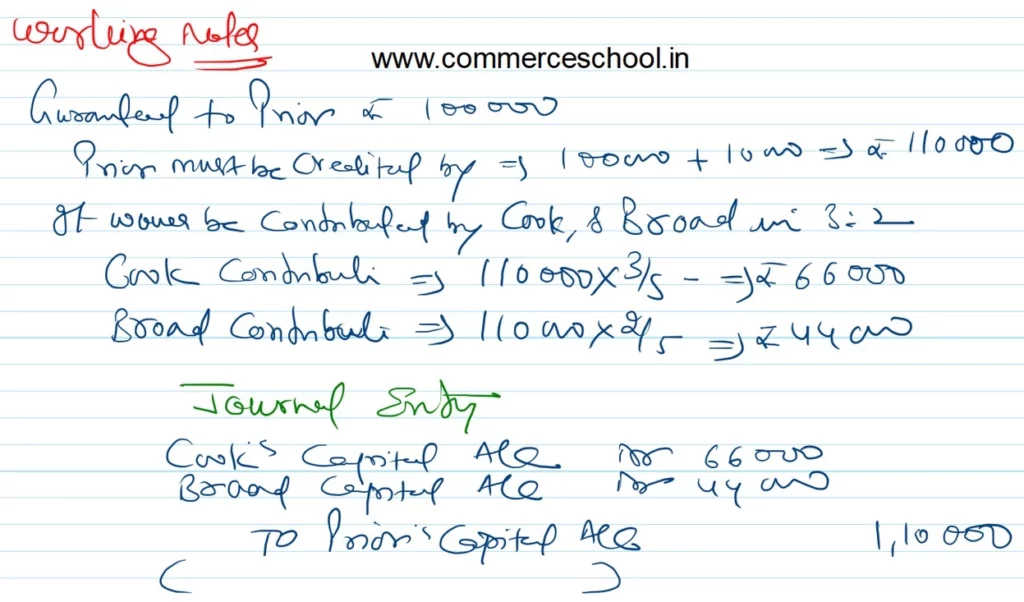 Working Notes
www.commerceschool.in
Guaranteed to Prior ₹ 100000
Prior must be Credited by ⇒ 100000 + 10000 ⇒ ₹ 110000
It would be Contributed by Cook, & Broad in 3:2
Cook Contributi ⇒ 110000 × 3/5 - ⇒ ₹ 66000
Broad Contributi ⇒ 110000 × 2/5 ⇒ ₹ 44000
Journal Entry
Cook's Capital A/c Dr 66000
Broad Capital A/c Dr 44000
To Prior's Capital A/c 1,10000
( )